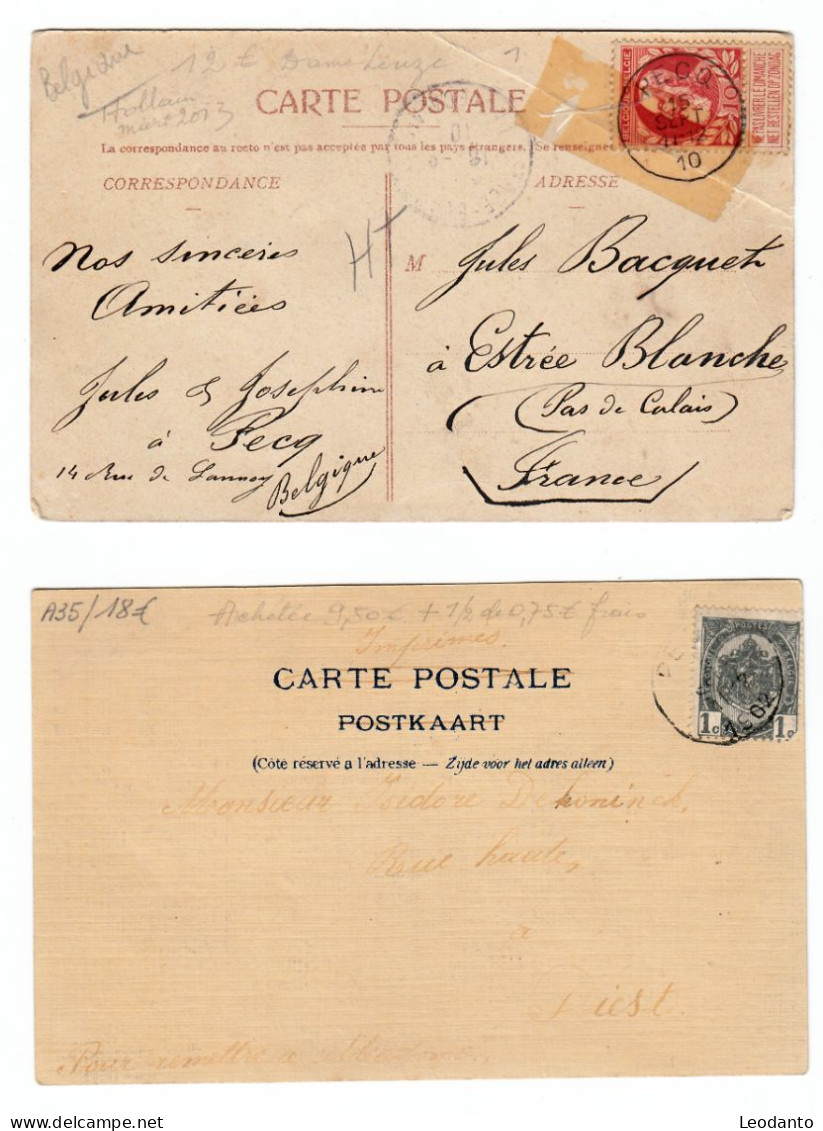 Belgique
12 €
Hollain
mars 2013
CARTE POSTALE
La correspondance au recto n'est pas acceptée par tous les pays étrangers. Se renseigner
CORRESPONDANCE
ADRESSE
BELGIQUE BELGIE
NE PAS LIVRER LE DIMANCHE
NIET BESTELLEN OP ZONDAG
PECQ
15
SEPT
11-12
10
Nos sincères
Amitiées
Jules & Josephine
à Pecq
14 Rue de Lannoy
Belgique
H
M Jules Bacquet
à Estrée Blanche
(Pas de Calais)
France
A35/18€
Achetée 9,50€ + 1/2 de 0,75€ frais
Imprimés.
CARTE POSTALE
POSTKAART
(Côté réservé a l'adresse — Zijde voor het adres alleen)
POSTES
1c 1c
1902
Monsieur Isidore Dekoninck,
Rue haute,
à
Diest.
Pour remettre a
Leodanto